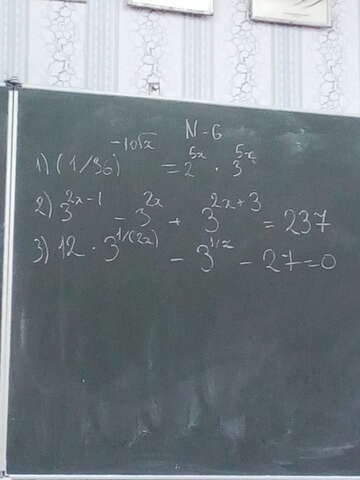 N-6
1) (1/36)^(-10√x) = 2^(5x) · 3^(5x)
2) 3^(2x-1) - 3^(2x) + 3^(2x+3) = 237
3) 12 · 3^(1/(2x)) - 3^(1/x) - 27 = 0